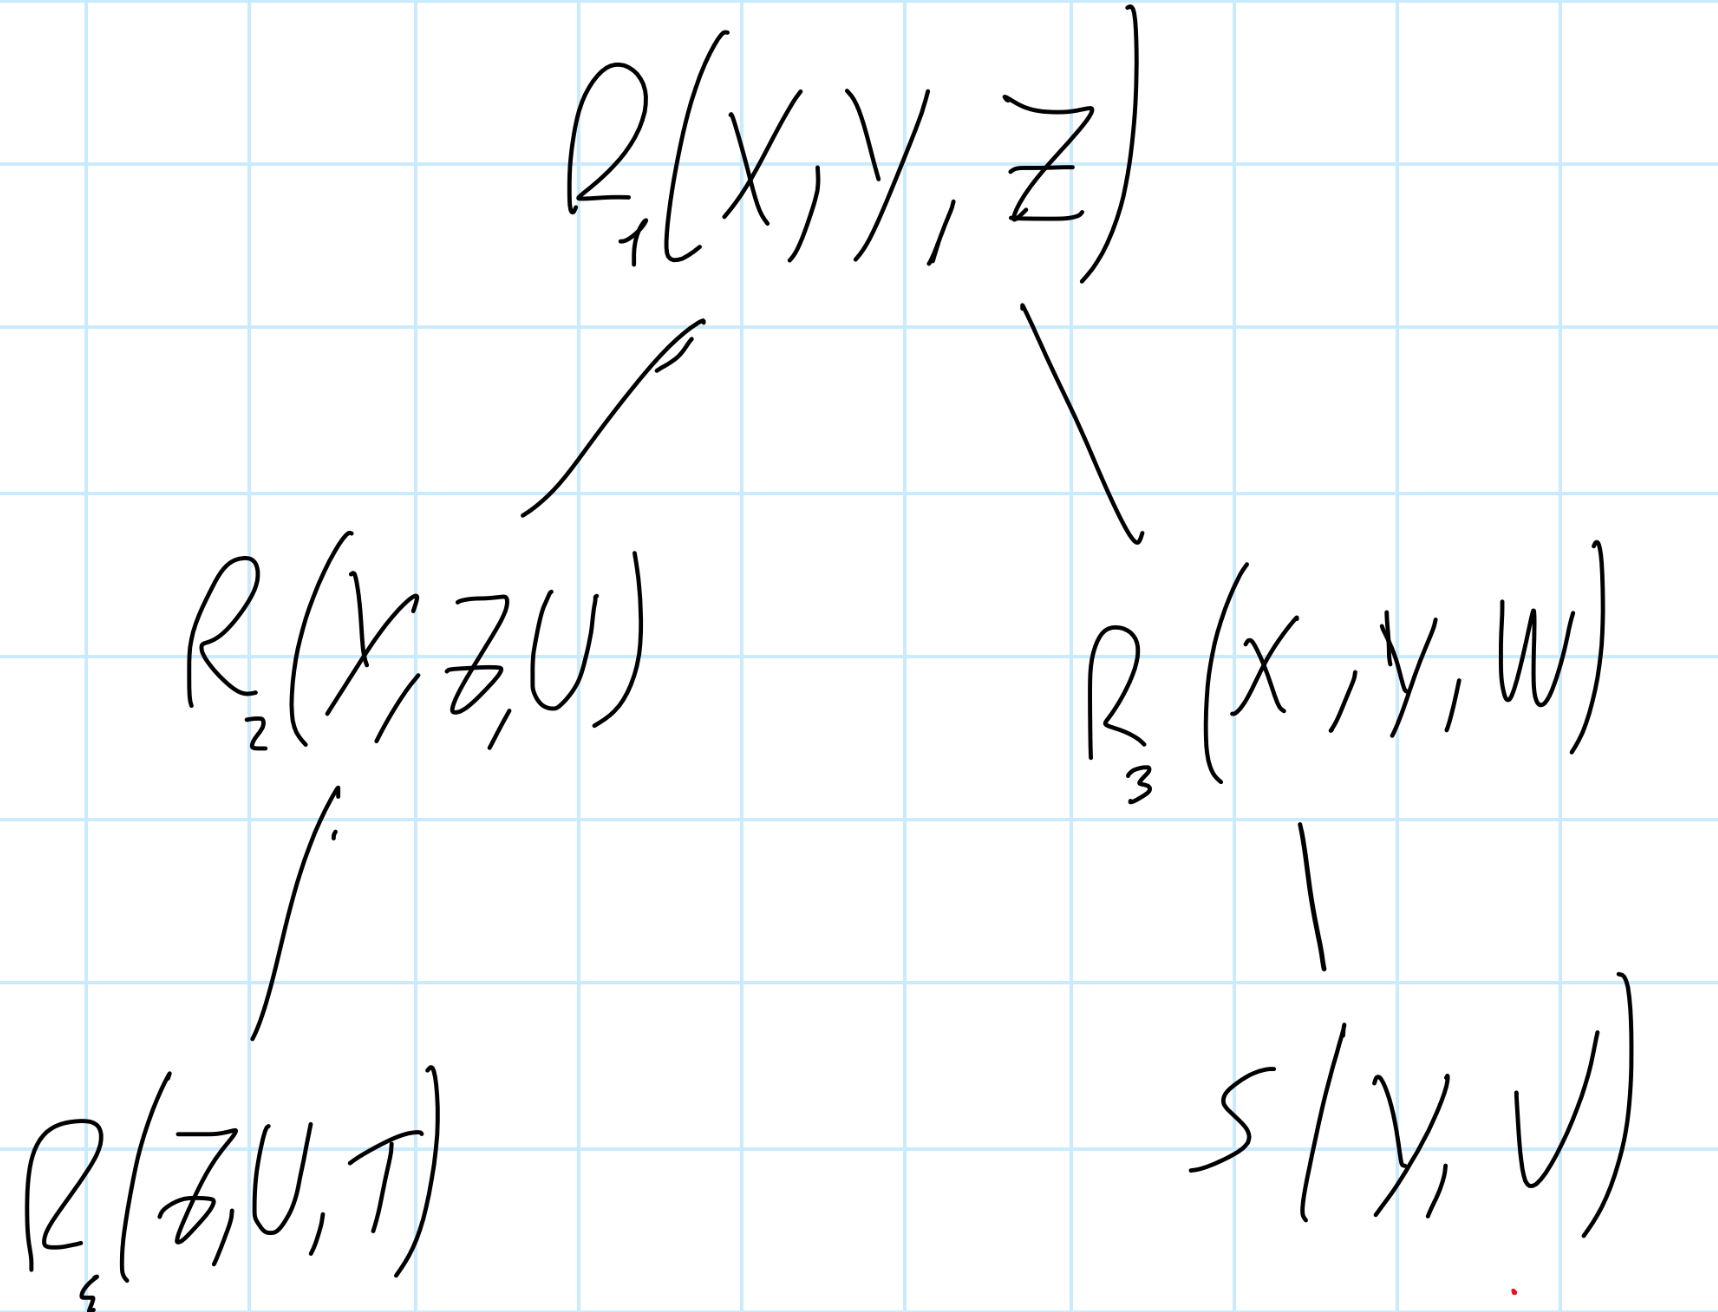 R1(X, Y, Z)
R2(Y, Z, U)
R3(X, Y, W)
R4(Z, U, T)
S(Y, U)